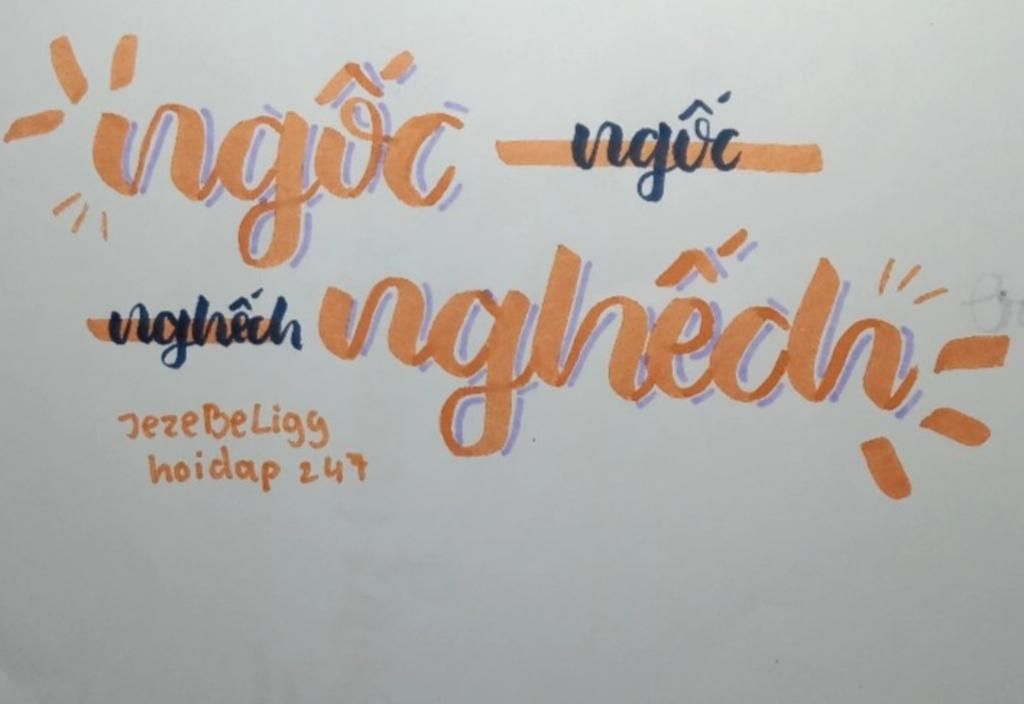 ngốc ngốc
nghếch nghếch
JezeBeLigg
hoidap 247